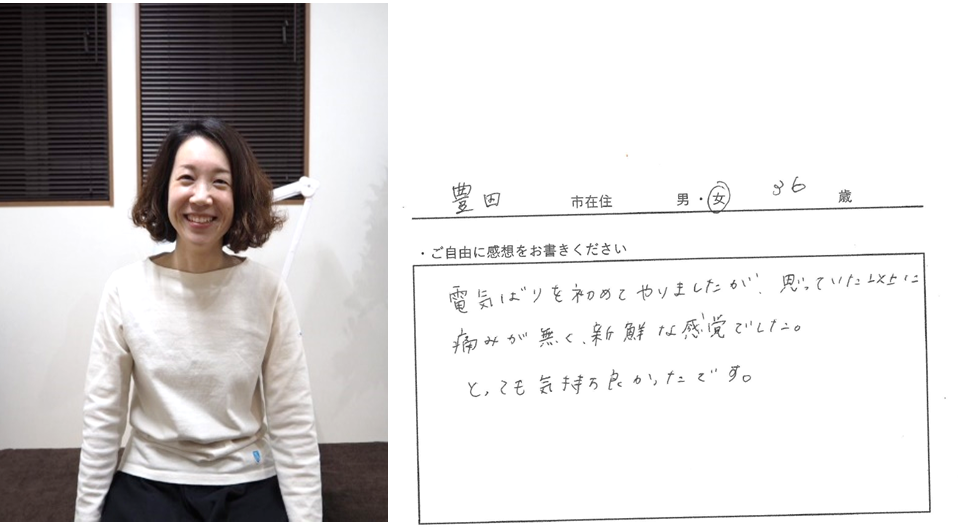 豊田 市在住 男・女 36 歳
・ご自由に感想をお書きください
電気ばりを初めてやりましたが、思っていた以上に
痛みが無く、新鮮な感覚でした。
とっても気持ち良かったです。